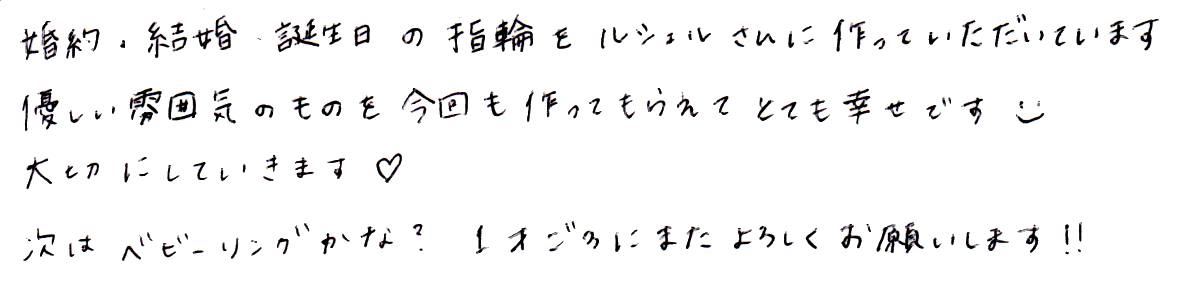 婚約、結婚、誕生日の指輪をルシェルさんに作っていただいています
優しい雰囲気のものを今回も作ってもらえてとても幸せです
大切にしていきます♡
次はベビーリングかな? 1才ごろにまたよろしくお願いします!!